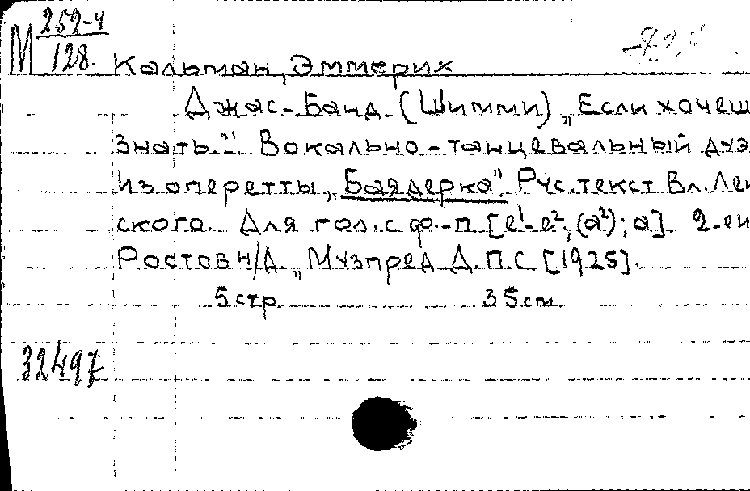 М 259-4
128.
Кальман, Эммерих
Джас-Банд (Шимми) „Если хочеш
знать..." Вокально-танцевальный дуэ
из оперетты „Баядерка". Рус. текст Вл. Лен
ского. Для гол. с ф.-п. [e¹-e², (a²); a]. 2-ен
Ростов н/Д. „Музпред Д.П.С [1925].
5 стр. 35 см.
32497